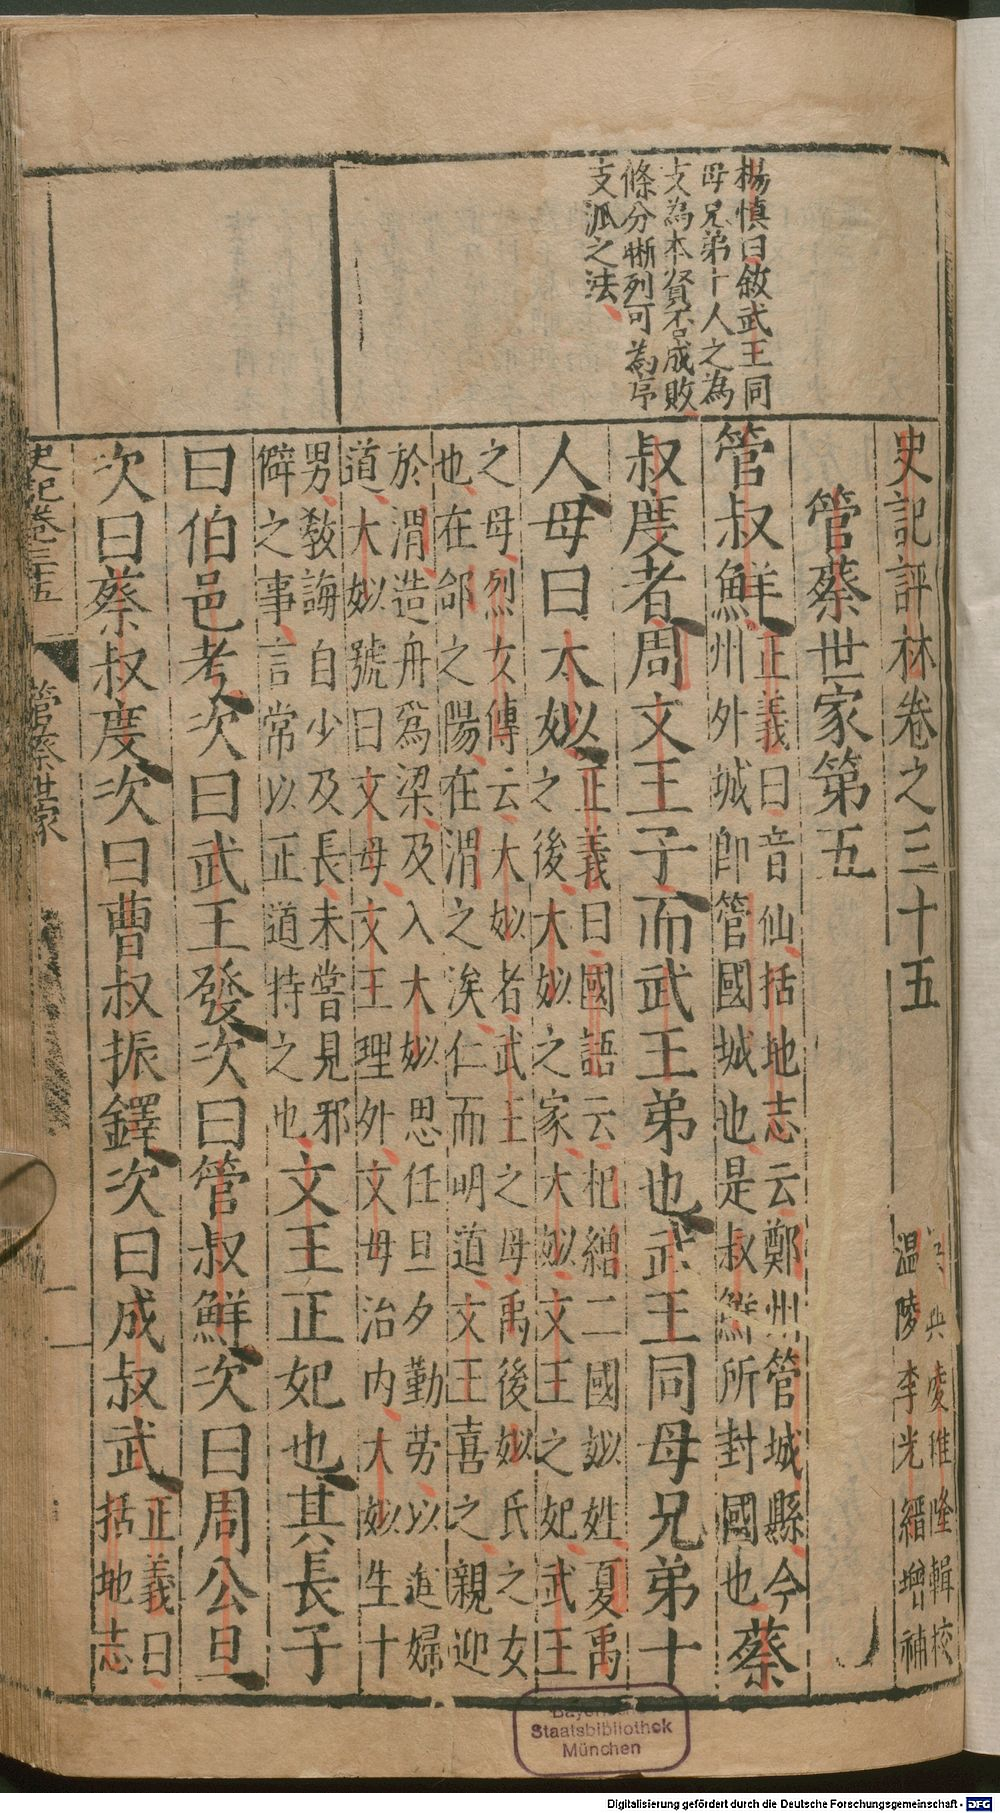 楊慎曰敘武王同
母兄弟十人之為
文為本賢否成敗
條分晣列可為序
支派之法
史記評林卷之三十五
凌稚隆輯校
溫陵李光縉增補
管蔡世家第五
管叔鮮正義曰音仙括地志云鄭州管城縣今州外城卽管國城也是叔鮮所封國也蔡
叔度者周文王子而武王弟也武王同母兄弟十
人母曰太姒正義曰國語云杞繒二國姒姓夏禹之後大姒之家大姒文王之妃武王
之母烈女傳云大姒者武王之母禹後姒氏之女
也在郃之陽在渭之涘仁而明道文王喜之親迎
於渭造舟爲梁及入大姒思任旦夕勤勞以進婦
道大姒號曰文母文王理外文母治内大姒生十
男敎誨自少及長未嘗見邪僻之事言常以正道持之也文王正妃也其長子
曰伯邑考次曰武王發次曰管叔鮮次曰周公旦
次曰蔡叔度次曰曹叔振鐸次曰成叔武正義曰括地志
史記卷三十五
管蔡世家
一
Staatsbibliothek
München
Digitalisierung gefördert durch die Deutsche Forschungsgemeinschaft - DFG